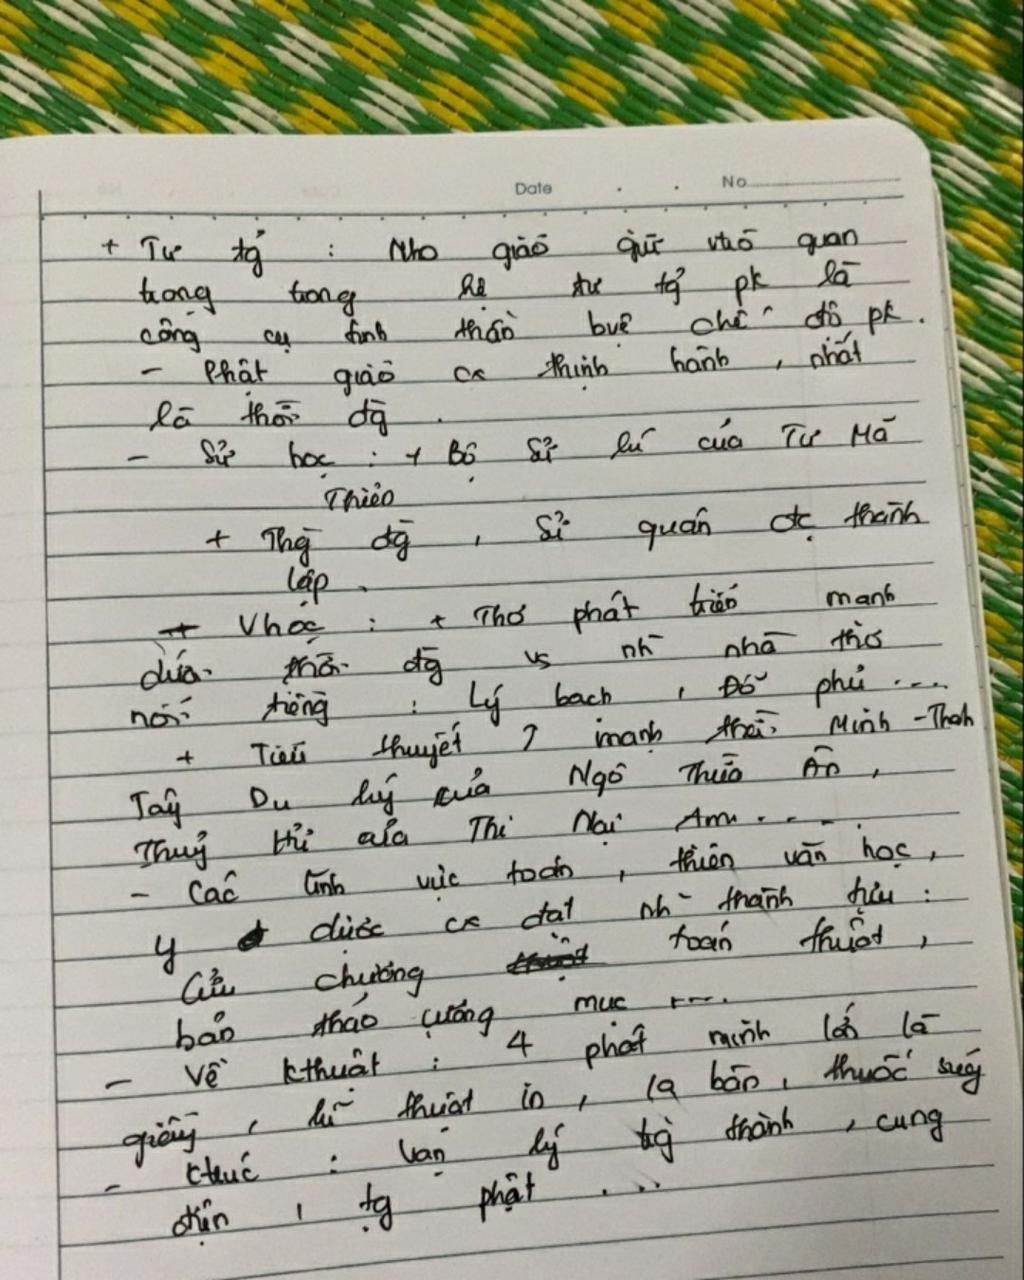 Date No
+ Tư tg̉ : Nho giáo giữ vtrò quan
trọng trong hệ tư tg̉ pk là
công cụ tinh thần bvệ chế độ pk.
- Phật giáo cx thịnh hành, nhất
là thời đg̀.
- Sử học : + Bộ Sử kí của Tư Mã
Thiên
+ Thg̀ đg̀, Sử quán đc thành
lập.
Vhọc : + Thơ phát triển mạnh
dưới thời đg̀ vs nh~ nhà thơ
nổi tiếng : Lý bạch, Đỗ phủ ....
+ Tiểu thuyết ? mạnh thời Minh - Thanh
Tây Du ký của Ngô Thừa Ân,
Thuỷ Hử của Thi Nại Am....
- Các lĩnh vực toán, thiên văn học,
y dược cx đạt nh~ thành tựu :
Cửu chương toán thuật,
bản thảo cương mục ....
- Về kthuật : 4 phát minh lớn là
giấy, kĩ thuật in, la bàn, thuốc súng
- ktrúc : Vạn lý trg̀ thành, cung
điện, tg phật ...